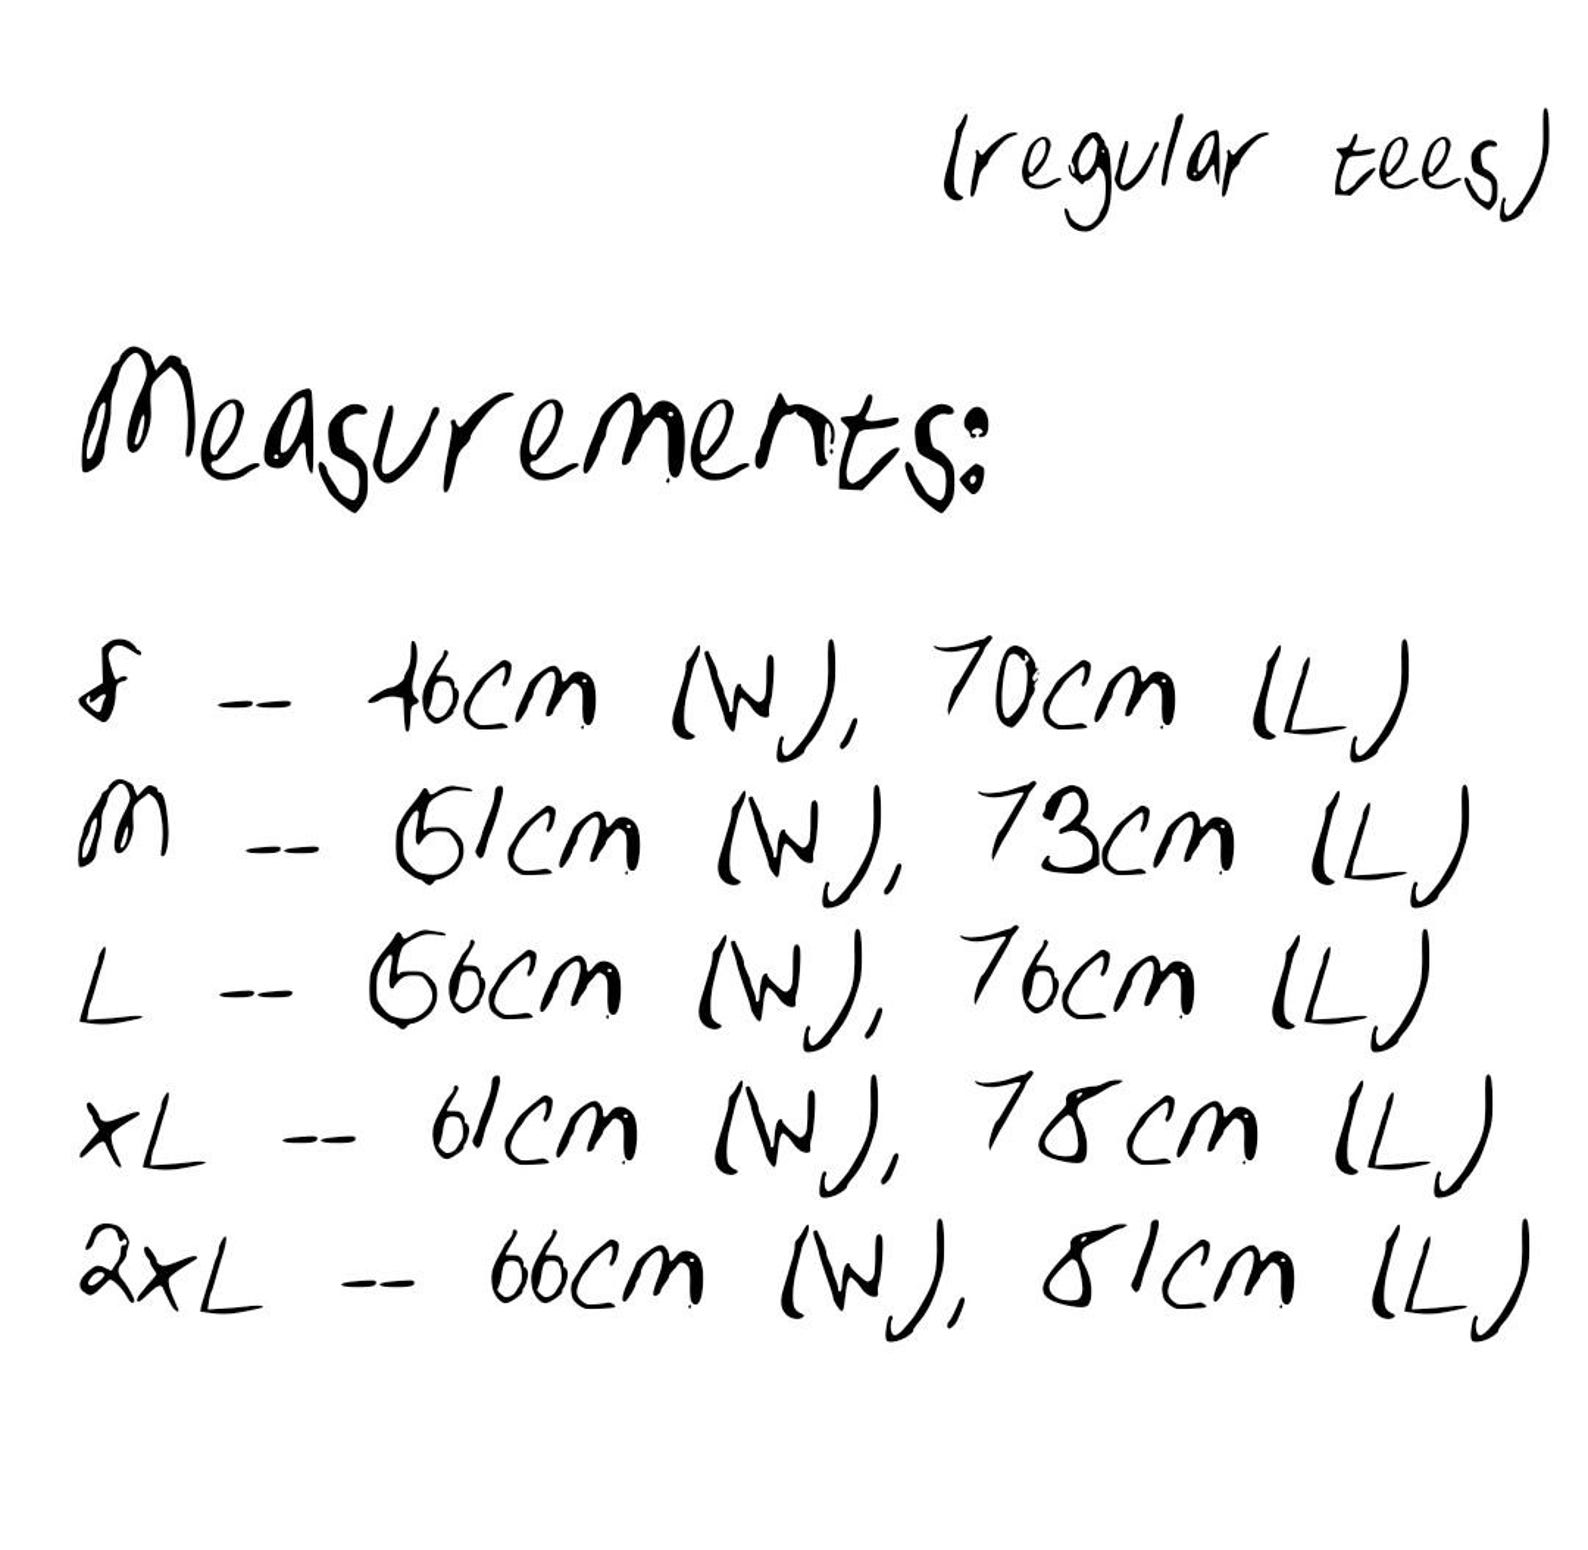 (regular tees)
Measurements:
S -- 46cm (W), 70cm (L)
M -- 51cm (W), 73cm (L)
L -- 56cm (W), 76cm (L)
XL -- 61cm (W), 78cm (L)
2XL -- 66cm (W), 81cm (L)